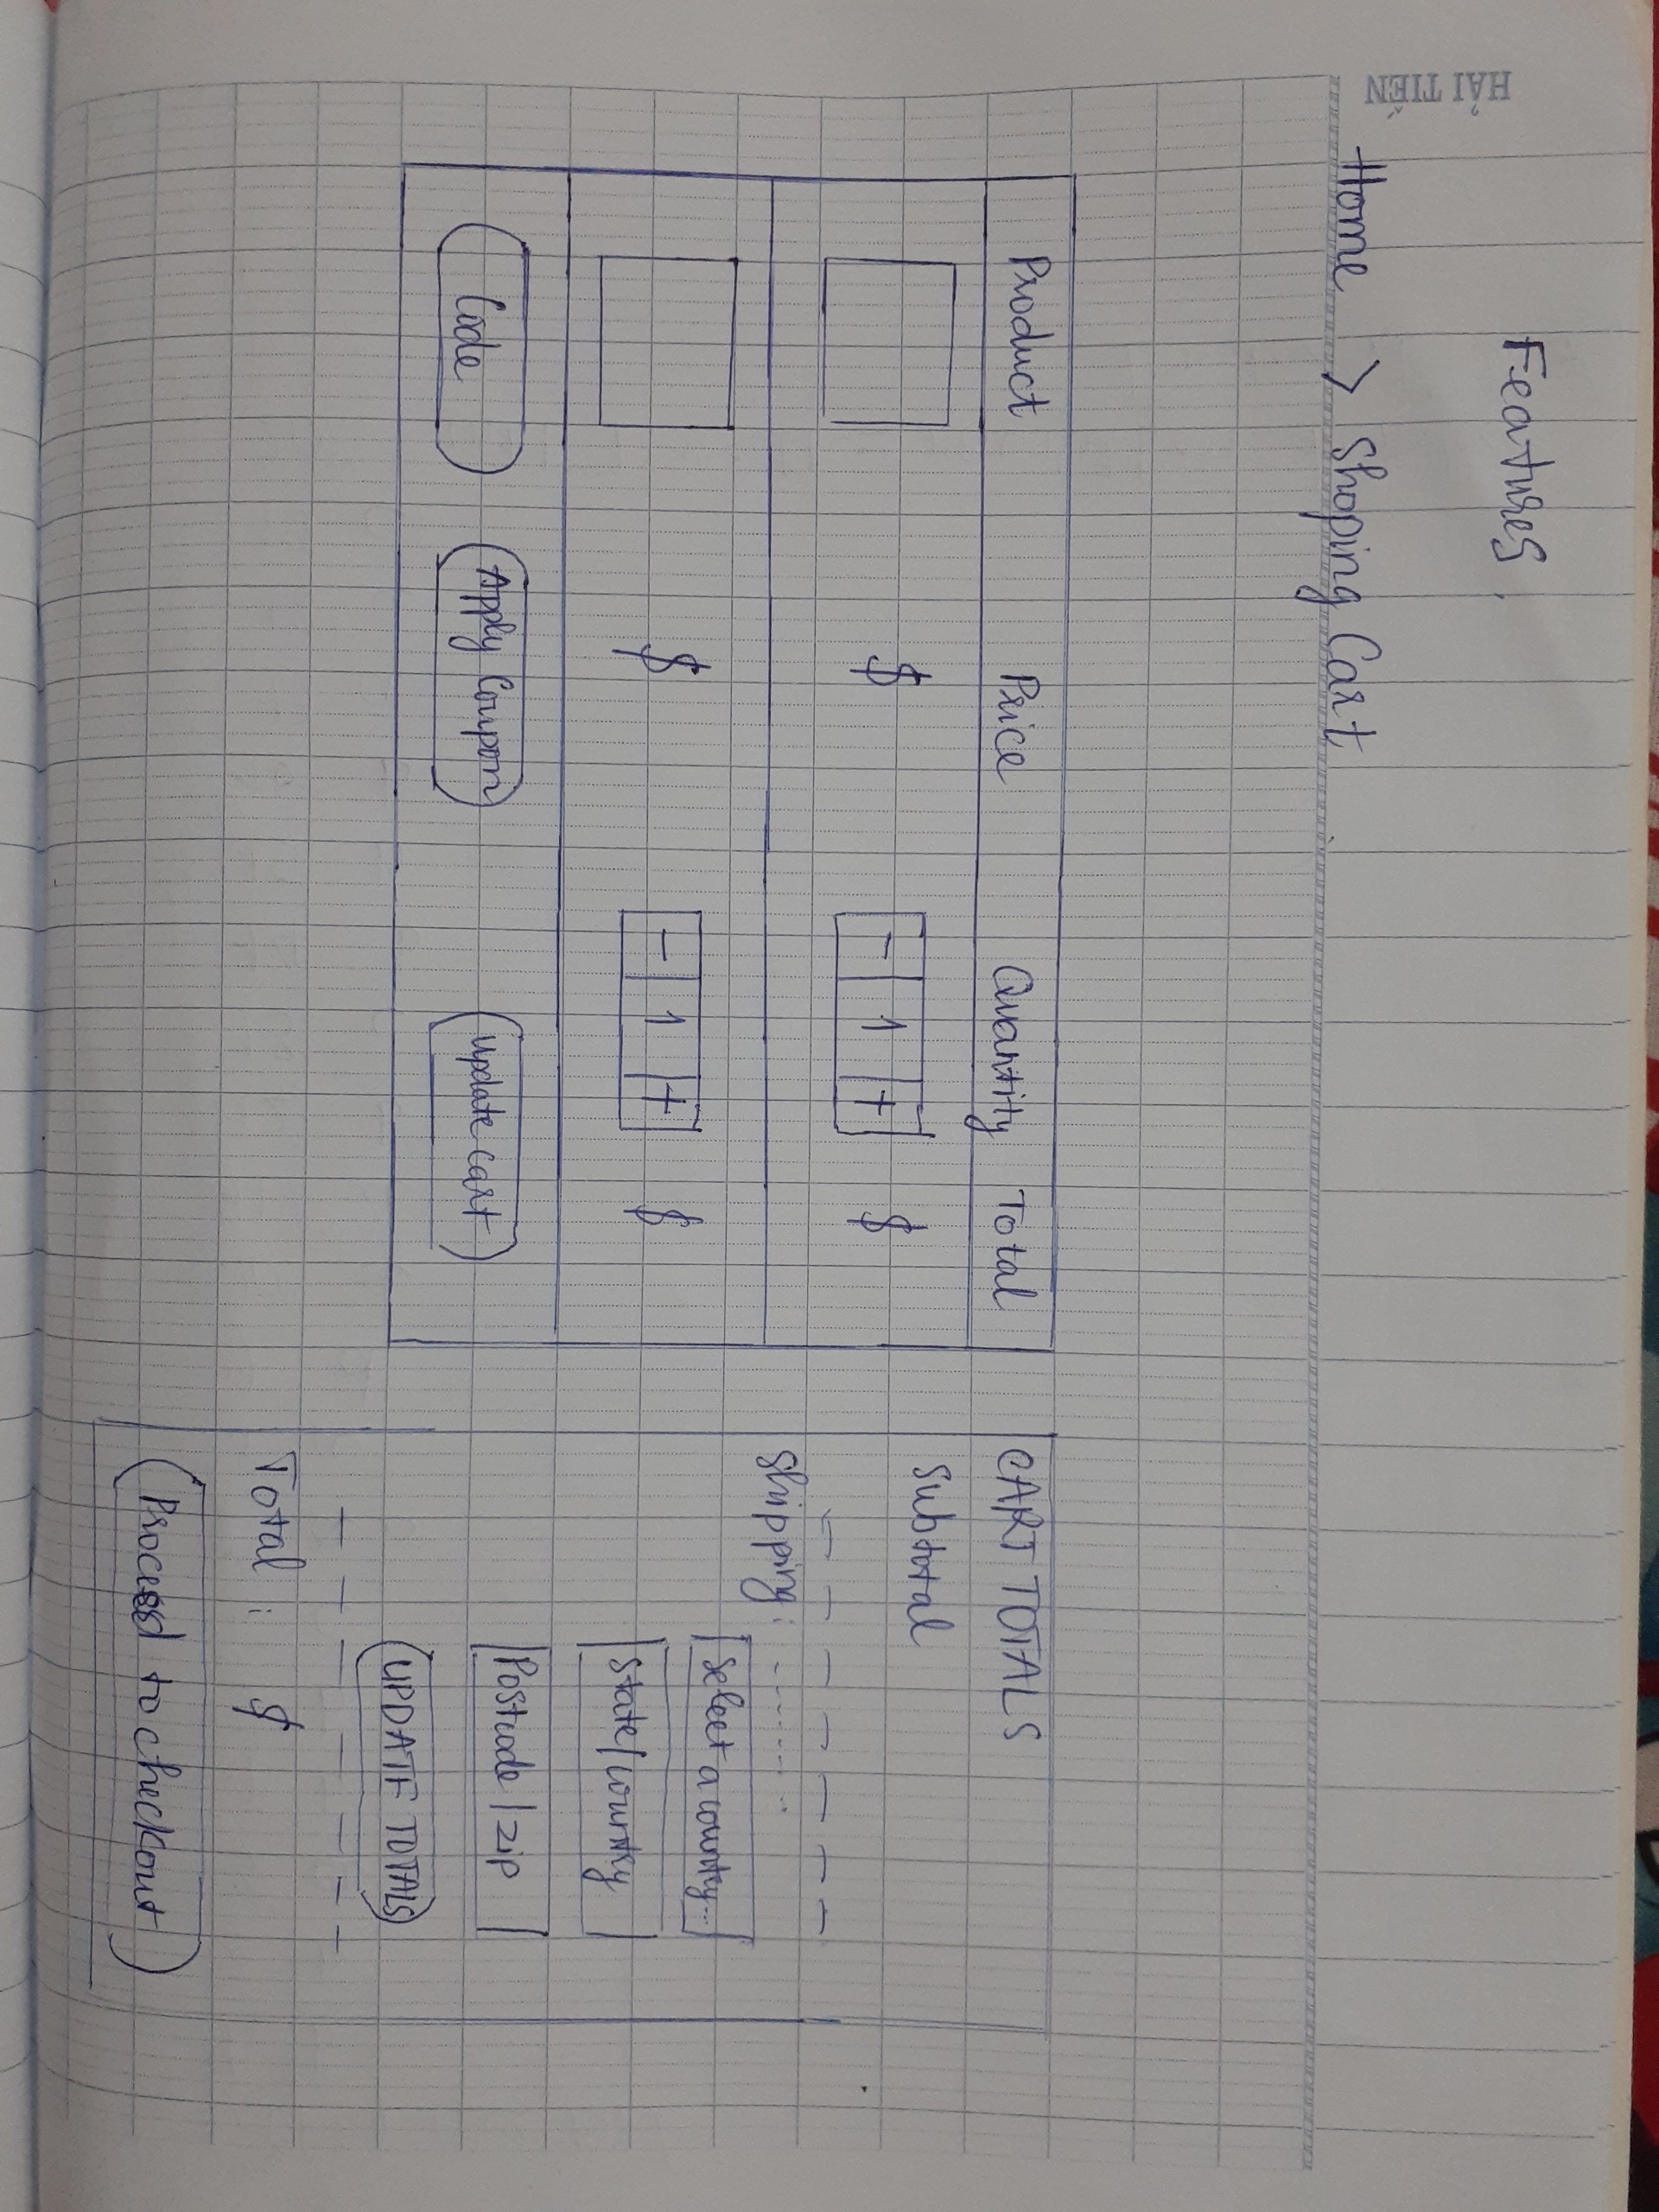 HẢI TIẾN
Features:
Home > Shoping Cart
Product Price Quantity Total
$ - 1 + $
$ - 1 + $
Code Apply Coupon Update cart
CART TOTALS
Subtotal
Shipping:
Select a country...
State/country
Postcode / zip
UPDATE TOTALS
Total : $
Process to checkout